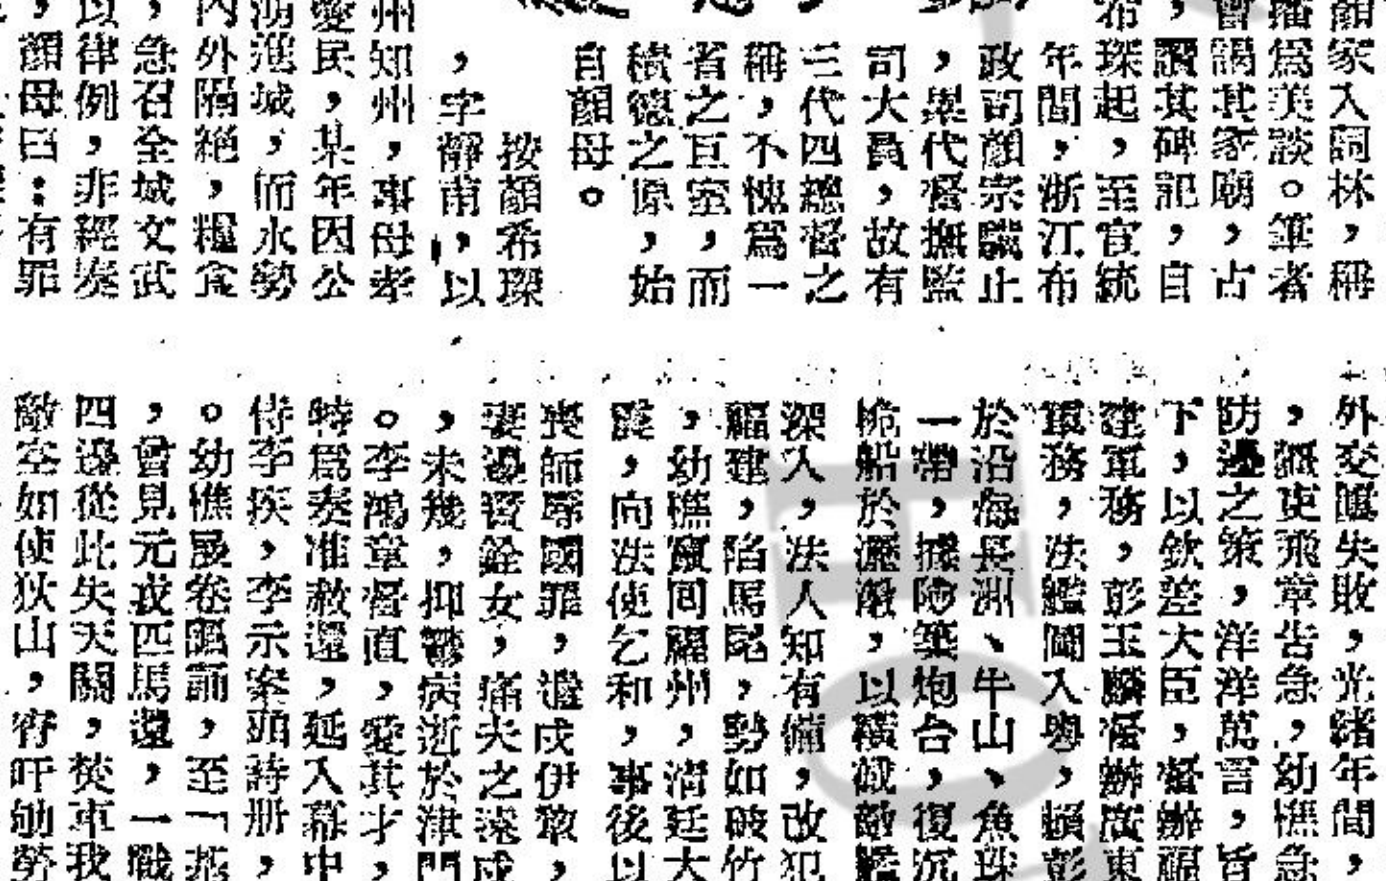 顏家入詞林，稱
播爲美談。筆者
曾謁其家廟，占
，讀其碑記，自
布琛起，至宣統
年間，浙江布
政司顏宗驥止
，累代督撫監
司大員，故有
三代四總督之
稱，不愧爲一
省之巨室，而
積德之原，始
自顏母。
按顏希琛
，字靜甫，以
州知州，事母孝
愛民，某年因公
湖進城，而永勢
內外隔絕，糧食
，急召全城文武
以律例，非經奏
，顏母曰：有罪
外交屢失敗，光緒年間，
，疆吏飛章告急，幼樵急
防邊之策，洋洋萬言，旨
下，以欽差大臣，督辦福
建軍務，彭玉麟督辦廣東
軍務，法艦闖入粵，賴彭
於沿海長洲、牛山、魚珠
一帶，據險築炮台，復沉
桅船於濠墩，以橫截敵艦
深入，法人知有備，改犯
福建，陷馬尾，勢如破竹
，幼樵竄回福州，清廷大
震，向法使乞和，事後以
喪師辱國罪，遣戍伊犂，
妻邊寶銓女，痛夫之遠戍
，未幾，抑鬱病逝於津門
。李鴻章督直，愛其才，
特爲奏准赦還，延入幕中
侍李疾，李示案頭詩册，
。幼樵展卷臨誦，至「基
，曾見元戎匹馬還，一戰
四邊從此失天關，焚車我
敵空如使狄山，宵旰劬勞